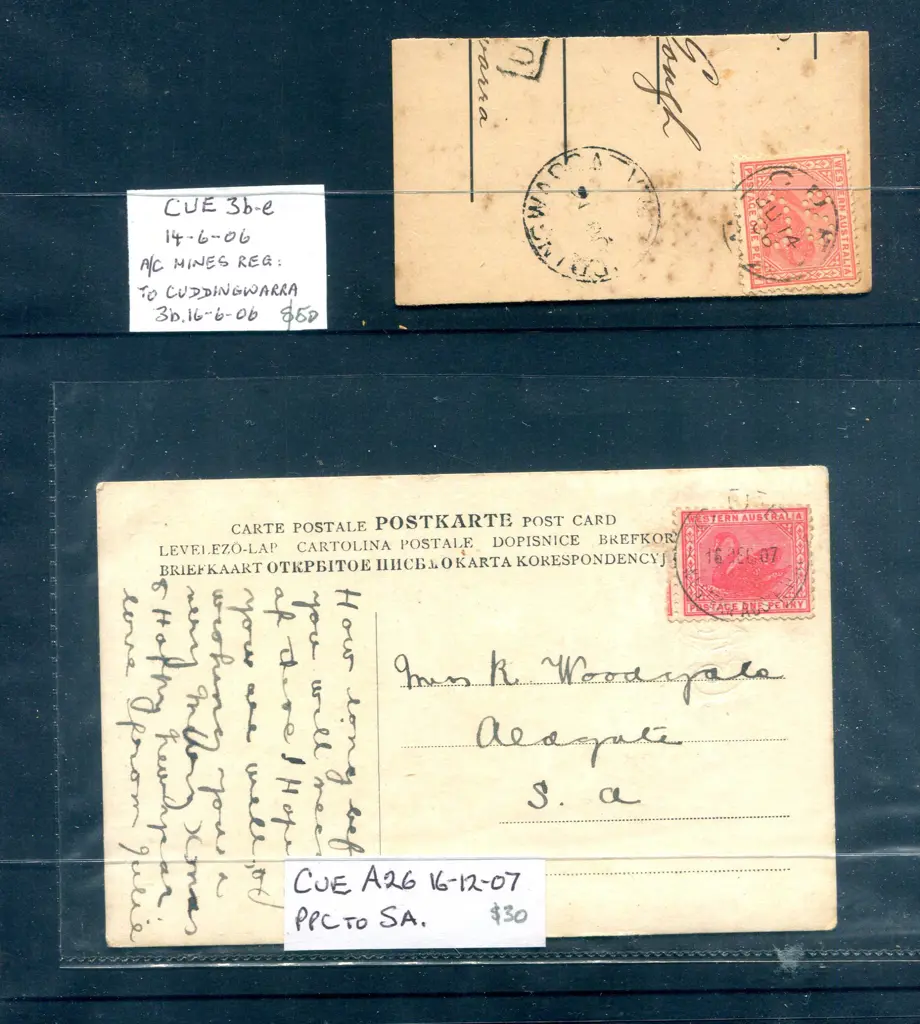 CUE 3b-e
14-6-06
A/C MINES REG:
TO CUDDINGWARRA
3b.16-6-06 $50
warra
Gough
CUE
JU 14
06
WESTERN AUSTRALIA
POSTAGE ONE PE
CARTE POSTALE POSTKARTE POST CARD
LEVELEZŐ-LAP CARTOLINA POSTALE DOPISNICE BREFKOR
BRIEFKAART ОТКРЫТОЕ ПИСЬМО KARTA KORESPONDENCYJ
WESTERN AUSTRALIA
16 DEC 07
POSTAGE ONE PENNY
How long bef
you will
at dere I Hope
you are well, of
wishing you a
very Merry Xmas
& Happy Newyear.
love from Julie
Miss R. Woodgate
Aldgate
S. A
CUE A26 16-12-07
PPC TO SA. $30